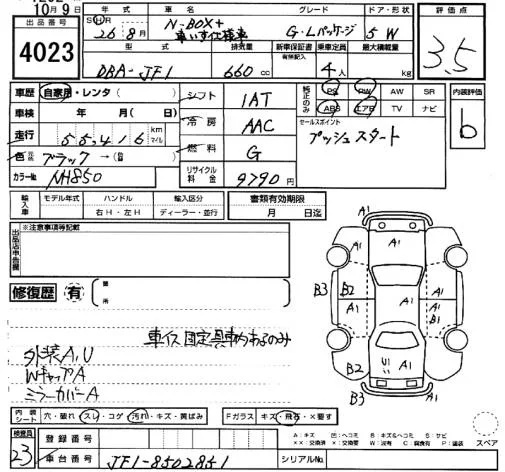 10月9日
出品番号
4023
年式 車名 グレード ドア・形状
SHUR 26年8月 N-BOX+ 車いす仕様車 G・Lパッケージ 5 W
型式 排気量 新車保証書 乗車定員 最大積載量
有無記入
DBA-JF1 660cc 4人 kg
評価点
3.5
車歴 自家用・レンタ( )
車検 年 月( 日)
走行 55,416 km マイル
色 ブラック→( )
カラーNo. NH850
シフト 1AT
冷房 AAC
燃料 G
リサイクル料金 9790円
純正のみ PS PW AW SR
ABS エアB TV ナビ
セールスポイント
プッシュスタート
内装評価
b
輸入車 モデル年式 ハンドル 輸入区分
年 右H・左H ディーラー・並行
書類有効期限
月 日迄
出品店申告欄
※注意事項等記載
修復歴 有
箇所
車イス固定具車内あるのみ
外装A,U
WキャップA
ミラーカバーA
A1
A1 A1
A1
B3 B2 A1 A1 B2
U1 A1
B2 A1
B3
内装シート 穴・破れ・スレ・コゲ・汚れ・キズ・黄ばみ
Fガラス キズ・飛石・×要す
A:キズ 凹:ヘコミ B:キズ&ヘコミ S:サビ
××:交換済 ×:交換要 W:波有 C:腐食有 P:塗装
スペア
検査員
23
登録番号
車台番号 JF1-8502851
シリアルNo.